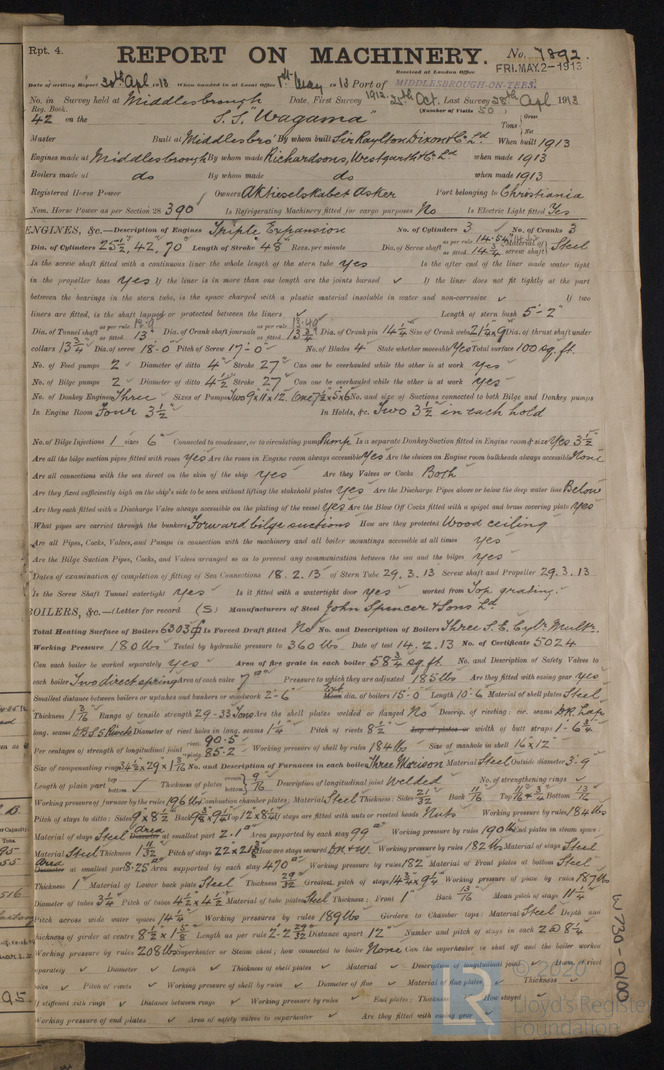 Rpt. 4.
REPORT ON MACHINERY. No. 7892.
Received at London Office FRI. MAY. 2 - 1913
Date of writing Report 30th Apl 13 When handed in at Local Office 1st May 1913 Port of MIDDLESBROUGH-ON-TEES.
No. in Survey held at Middlesbrough Date, First Survey 1912 25th Oct. Last Survey 28th Apl 1913
Reg. Book. (Number of Visits 50)
42 on the S.S. "Wagama" Tons Gross Net
Master Built at Middlesbro' By whom built Sir Raylton Dixon & Co. Ld. When built 1913
Engines made at Middlesbrough By whom made Richardsons, Westgarth & Co. Ld when made 1913
Boilers made at do By whom made do when made 1913
Registered Horse Power Owners Aktieselskabet Asker Port belonging to Christiania
Nom. Horse Power as per Section 28 390 Is Refrigerating Machinery fitted for cargo purposes No Is Electric Light fitted Yes
ENGINES, &c.—Description of Engines Triple Expansion No. of Cylinders 3 No. of Cranks 3
Dia. of Cylinders 25½", 42", 70" Length of Stroke 48" Revs. per minute Dia. of Screw shaft as per rule 14.54" as fitted 14¾" Material of screw shaft Steel
Is the screw shaft fitted with a continuous liner the whole length of the stern tube Yes Is the after end of the liner made water tight
in the propeller boss Yes If the liner is in more than one length are the joints burned ✓ If the liner does not fit tightly at the part
between the bearings in the stern tube, is the space charged with a plastic material insoluble in water and non-corrosive ✓ If two
liners are fitted, is the shaft lapped or protected between the liners ✓ Length of stern bush 5'-2"
Dia. of Tunnel shaft as per rule as fitted 13" Dia. of Crank shaft journals as per rule as fitted 13¾" Dia. of Crank pin 14¼" Size of Crank webs 21¼" x 9" Dia. of thrust shaft under
collars 13¾" Dia. of screw 18'-0" Pitch of Screw 17'-0" No. of Blades 4 State whether moveable Yes Total surface 100 sq. ft.
No. of Feed pumps 2 Diameter of ditto 4" Stroke 27" Can one be overhauled while the other is at work Yes
No. of Bilge pumps 2 Diameter of ditto 4½" Stroke 27" Can one be overhauled while the other is at work Yes
No. of Donkey Engines Three Sizes of Pumps Two 9x11x12. One 7½x5x6 No. and size of Suctions connected to both Bilge and Donkey pumps
In Engine Room Four 3½" In Holds, &c. Two 3½" in each hold
No. of Bilge Injections 1 sizes 6" Connected to condenser, or to circulating pump Pump Is a separate Donkey Suction fitted in Engine room & size Yes 3½"
Are all the bilge suction pipes fitted with roses Yes Are the roses in Engine room always accessible Yes Are the sluices on Engine room bulkheads always accessible None
Are all connections with the sea direct on the skin of the ship Yes Are they Valves or Cocks Both
Are they fixed sufficiently high on the ship's side to be seen without lifting the stokehold plates Yes Are the Discharge Pipes above or below the deep water line Below
Are they each fitted with a Discharge Valve always accessible on the plating of the vessel Yes Are the Blow Off Cocks fitted with a spigot and brass covering plate Yes
What pipes are carried through the bunkers Forward bilge suctions How are they protected Wood ceiling
Are all Pipes, Cocks, Valves, and Pumps in connection with the machinery and all boiler mountings accessible at all times Yes
Are the Bilge Suction Pipes, Cocks, and Valves arranged so as to prevent any communication between the sea and the bilges Yes
Dates of examination of completion of fitting of Sea Connections 18.2.13 of Stern Tube 29.3.13 Screw shaft and Propeller 29.3.13
Is the Screw Shaft Tunnel watertight Yes Is it fitted with a watertight door Yes worked from Top grating.
BOILERS, &c.—(Letter for record (S) Manufacturers of Steel John Spencer & Sons Ld
Total Heating Surface of Boilers 6303 Is Forced Draft fitted No No. and Description of Boilers Three S.E. Cylr. Multr.
Working Pressure 180 lbs Tested by hydraulic pressure to 360 lbs Date of test 14.2.13 No. of Certificate 5024
Can each boiler be worked separately Yes Area of fire grate in each boiler 58¾ sq. ft. No. and Description of Safety Valves to
each boiler Two direct spring Area of each valve 7" Pressure to which they are adjusted 185 lbs Are they fitted with easing gear Yes
Smallest distance between boilers or uptakes and bunkers or woodwork 2'-6" dia. of boilers 15'-0" Length 10'-6" Material of shell plates Steel
Thickness 1 3/16" Range of tensile strength 29-33 Tons Are the shell plates welded or flanged No Descrip. of riveting: cir. seams D.R. Lap
long. seams Diameter of rivet holes in long. seams 1¼" Pitch of rivets 8½" width of butt straps 1'-6¾"
Per centages of strength of longitudinal joint rivets 90.5 plate 85.2 Working pressure of shell by rules 184 lbs Size of manhole in shell 16"x12"
Size of compensating ring 34½x29x1 3/16 No. and Description of Furnaces in each boiler Three Morison Material Steel Outside diameter 3'-9"
Length of plain part top bottom ✓ Thickness of plates crown bottom 9/16" Description of longitudinal joint Welded No. of strengthening rings ✓
Working pressure of furnace by the rules 196 lbs Combustion chamber plates: Material Steel Thickness: Sides 21/32" Back 11/16" Top Bottom 13/16"
Pitch of stays to ditto: Sides 9"x8½" Back Top If stays are fitted with nuts or riveted heads Nuts Working pressure by rules 184 lbs
Material of stays Steel Area at smallest part 2.1" Area supported by each stay 99" Working pressure by rules 190 lbs End plates in steam space:
Material Steel Thickness Pitch of stays How are stays secured Working pressure by rules 182 lbs Material of stays Steel
Area at smallest part 8.25" Area supported by each stay 470" Working pressure by rules 182 Material of Front plates at bottom Steel
Thickness 1" Material of Lower back plate Steel Thickness 29/32" Greatest pitch of stays 14¾x9¼ Working pressure of plate by rules 187 lbs
Diameter of tubes 3¼" Pitch of tubes 4½x4½ Material of tube plates Steel Thickness: Front 1" Back 13/16" Mean pitch of stays 11¼"
Pitch across wide water spaces 14¼" Working pressures by rules 189 lbs Girders to Chamber tops: Material Steel Depth and
thickness of girder at centre 8½"x1⅝" Length as per rule 2'-2 29/32" Distance apart 12" Number and pitch of stays in each 2 @ 8¼"
Working pressure by rules 208 lbs Superheater or Steam chest; how connected to boiler None Can the superheater be shut off and the boiler worked
separately ✓ Diameter ✓ Length ✓ Thickness of shell plates ✓ Material ✓ Description of longitudinal joint ✓ Diam. of rivet
holes ✓ Pitch of rivets ✓ Working pressure of shell by rules ✓ Diameter of flue ✓ Material of flue plates ✓ Thickness ✓
If stiffened with rings ✓ Distance between rings ✓ Working pressure by rules ✓ End plates: Thickness ✓ How stayed ✓
Working pressure of end plates ✓ Area of safety valves to superheater ✓ Are they fitted with easing gear ✓
W730-0100
© 2020
LR
Lloyd's Register
Foundation